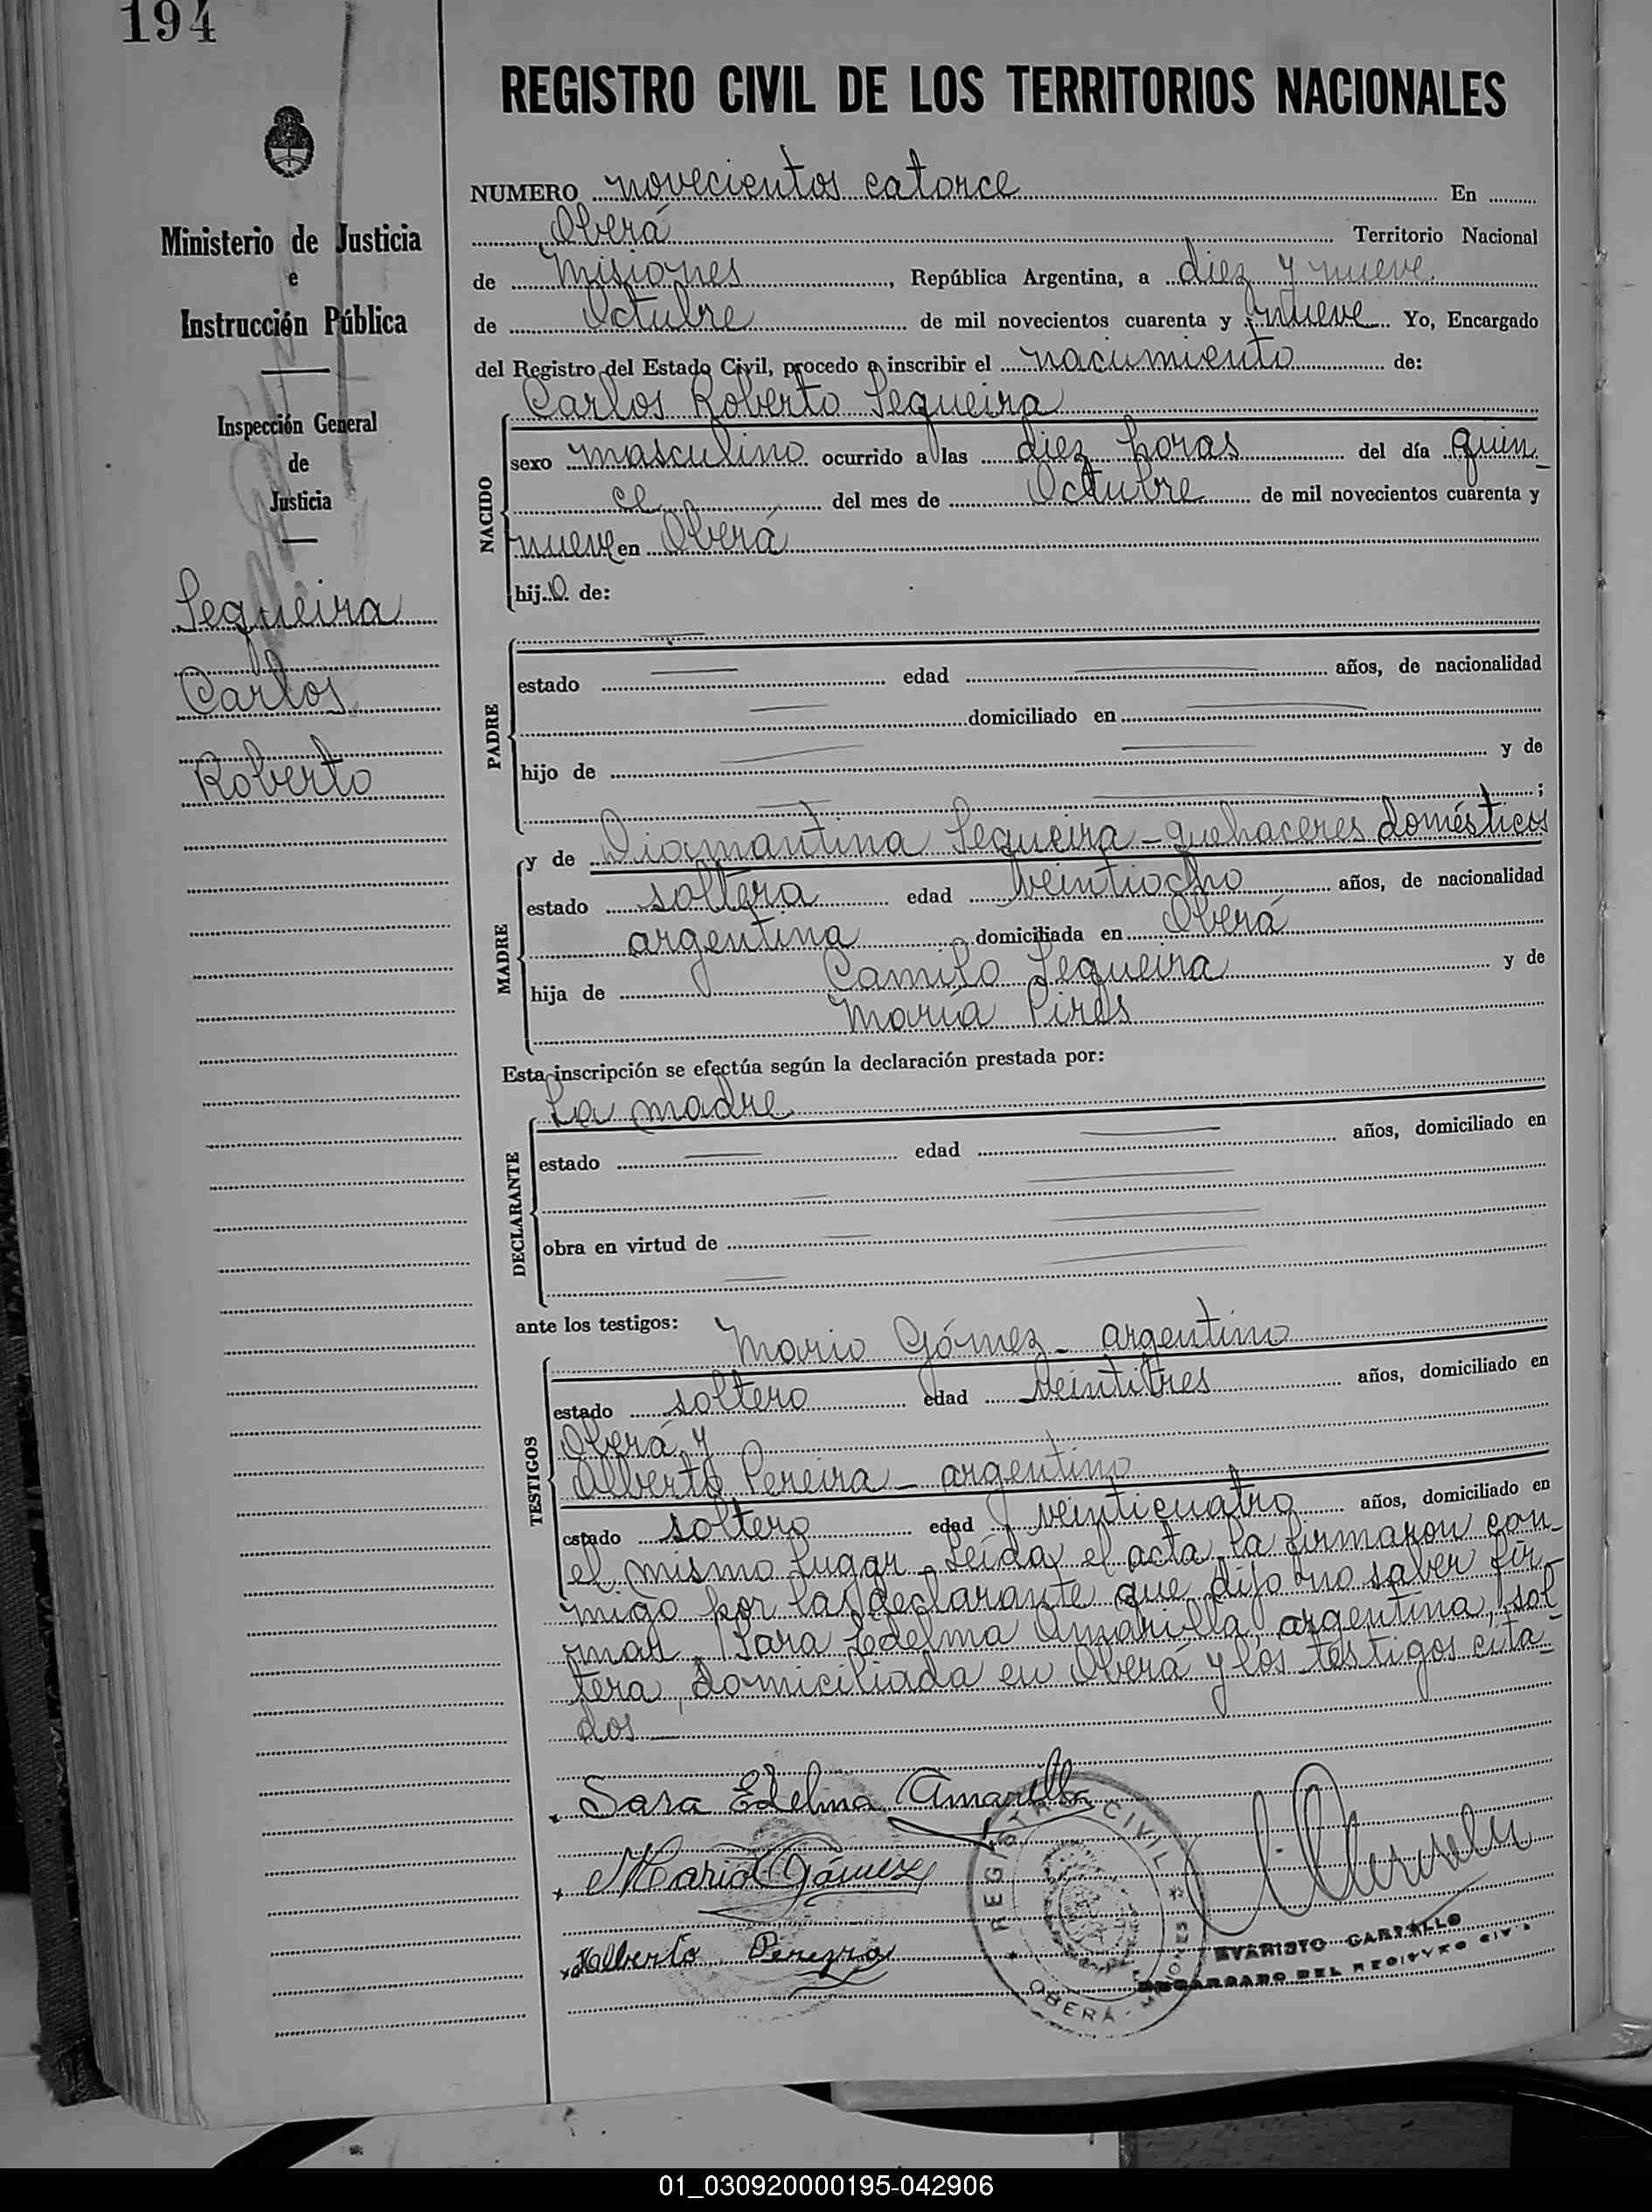 194
REGISTRO CIVIL DE LOS TERRITORIOS NACIONALES
Ministerio de Justicia
e
Instrucción Pública
Inspección General
de
Justicia
Sequeira
Carlos
Roberto
NUMERO novecientos catorce En
Oberá Territorio Nacional
de Misiones, República Argentina, a diez y nueve
de Octubre de mil novecientos cuarenta y nueve Yo, Encargado
del Registro del Estado Civil, procedo a inscribir el nacimiento de:
Carlos Roberto Sequeira
NACIDO
sexo masculino ocurrido a las diez horas del día quin-
ce del mes de Octubre de mil novecientos cuarenta y
nueve en Oberá
hijo de:
PADRE
estado edad años, de nacionalidad
domiciliado en
hijo de y de
;
MADRE
y de Diamantina Sequeira - quehaceres domésticos
estado soltera edad veintiocho años, de nacionalidad
argentina domiciliada en Oberá
hija de Camilo Sequeira y de
María Pires
Esta inscripción se efectúa según la declaración prestada por:
La madre
DECLARANTE
estado edad años, domiciliado en
obra en virtud de
ante los testigos:
Mario Gómez - argentino
TESTIGOS
estado soltero edad veintitres años, domiciliado en
Oberá y
Alberto Pereira - argentino
estado soltero edad veinticuatro años, domiciliado en
el mismo lugar. Leída el acta, la firmaron con-
migo por la declarante que dijo no saber fir-
mar, Sara Edelma Amarilla, argentina, sol-
tera, domiciliada en Oberá y los testigos cita-
dos
Sara Edelma Amarilla
Mario Gómez
Alberto Pereyra
REGISTRO CIVIL
OBERÁ - MISIONES
EVARISTO
ENCARGADO DEL REGISTRO CIVIL
01_030920000195-042906